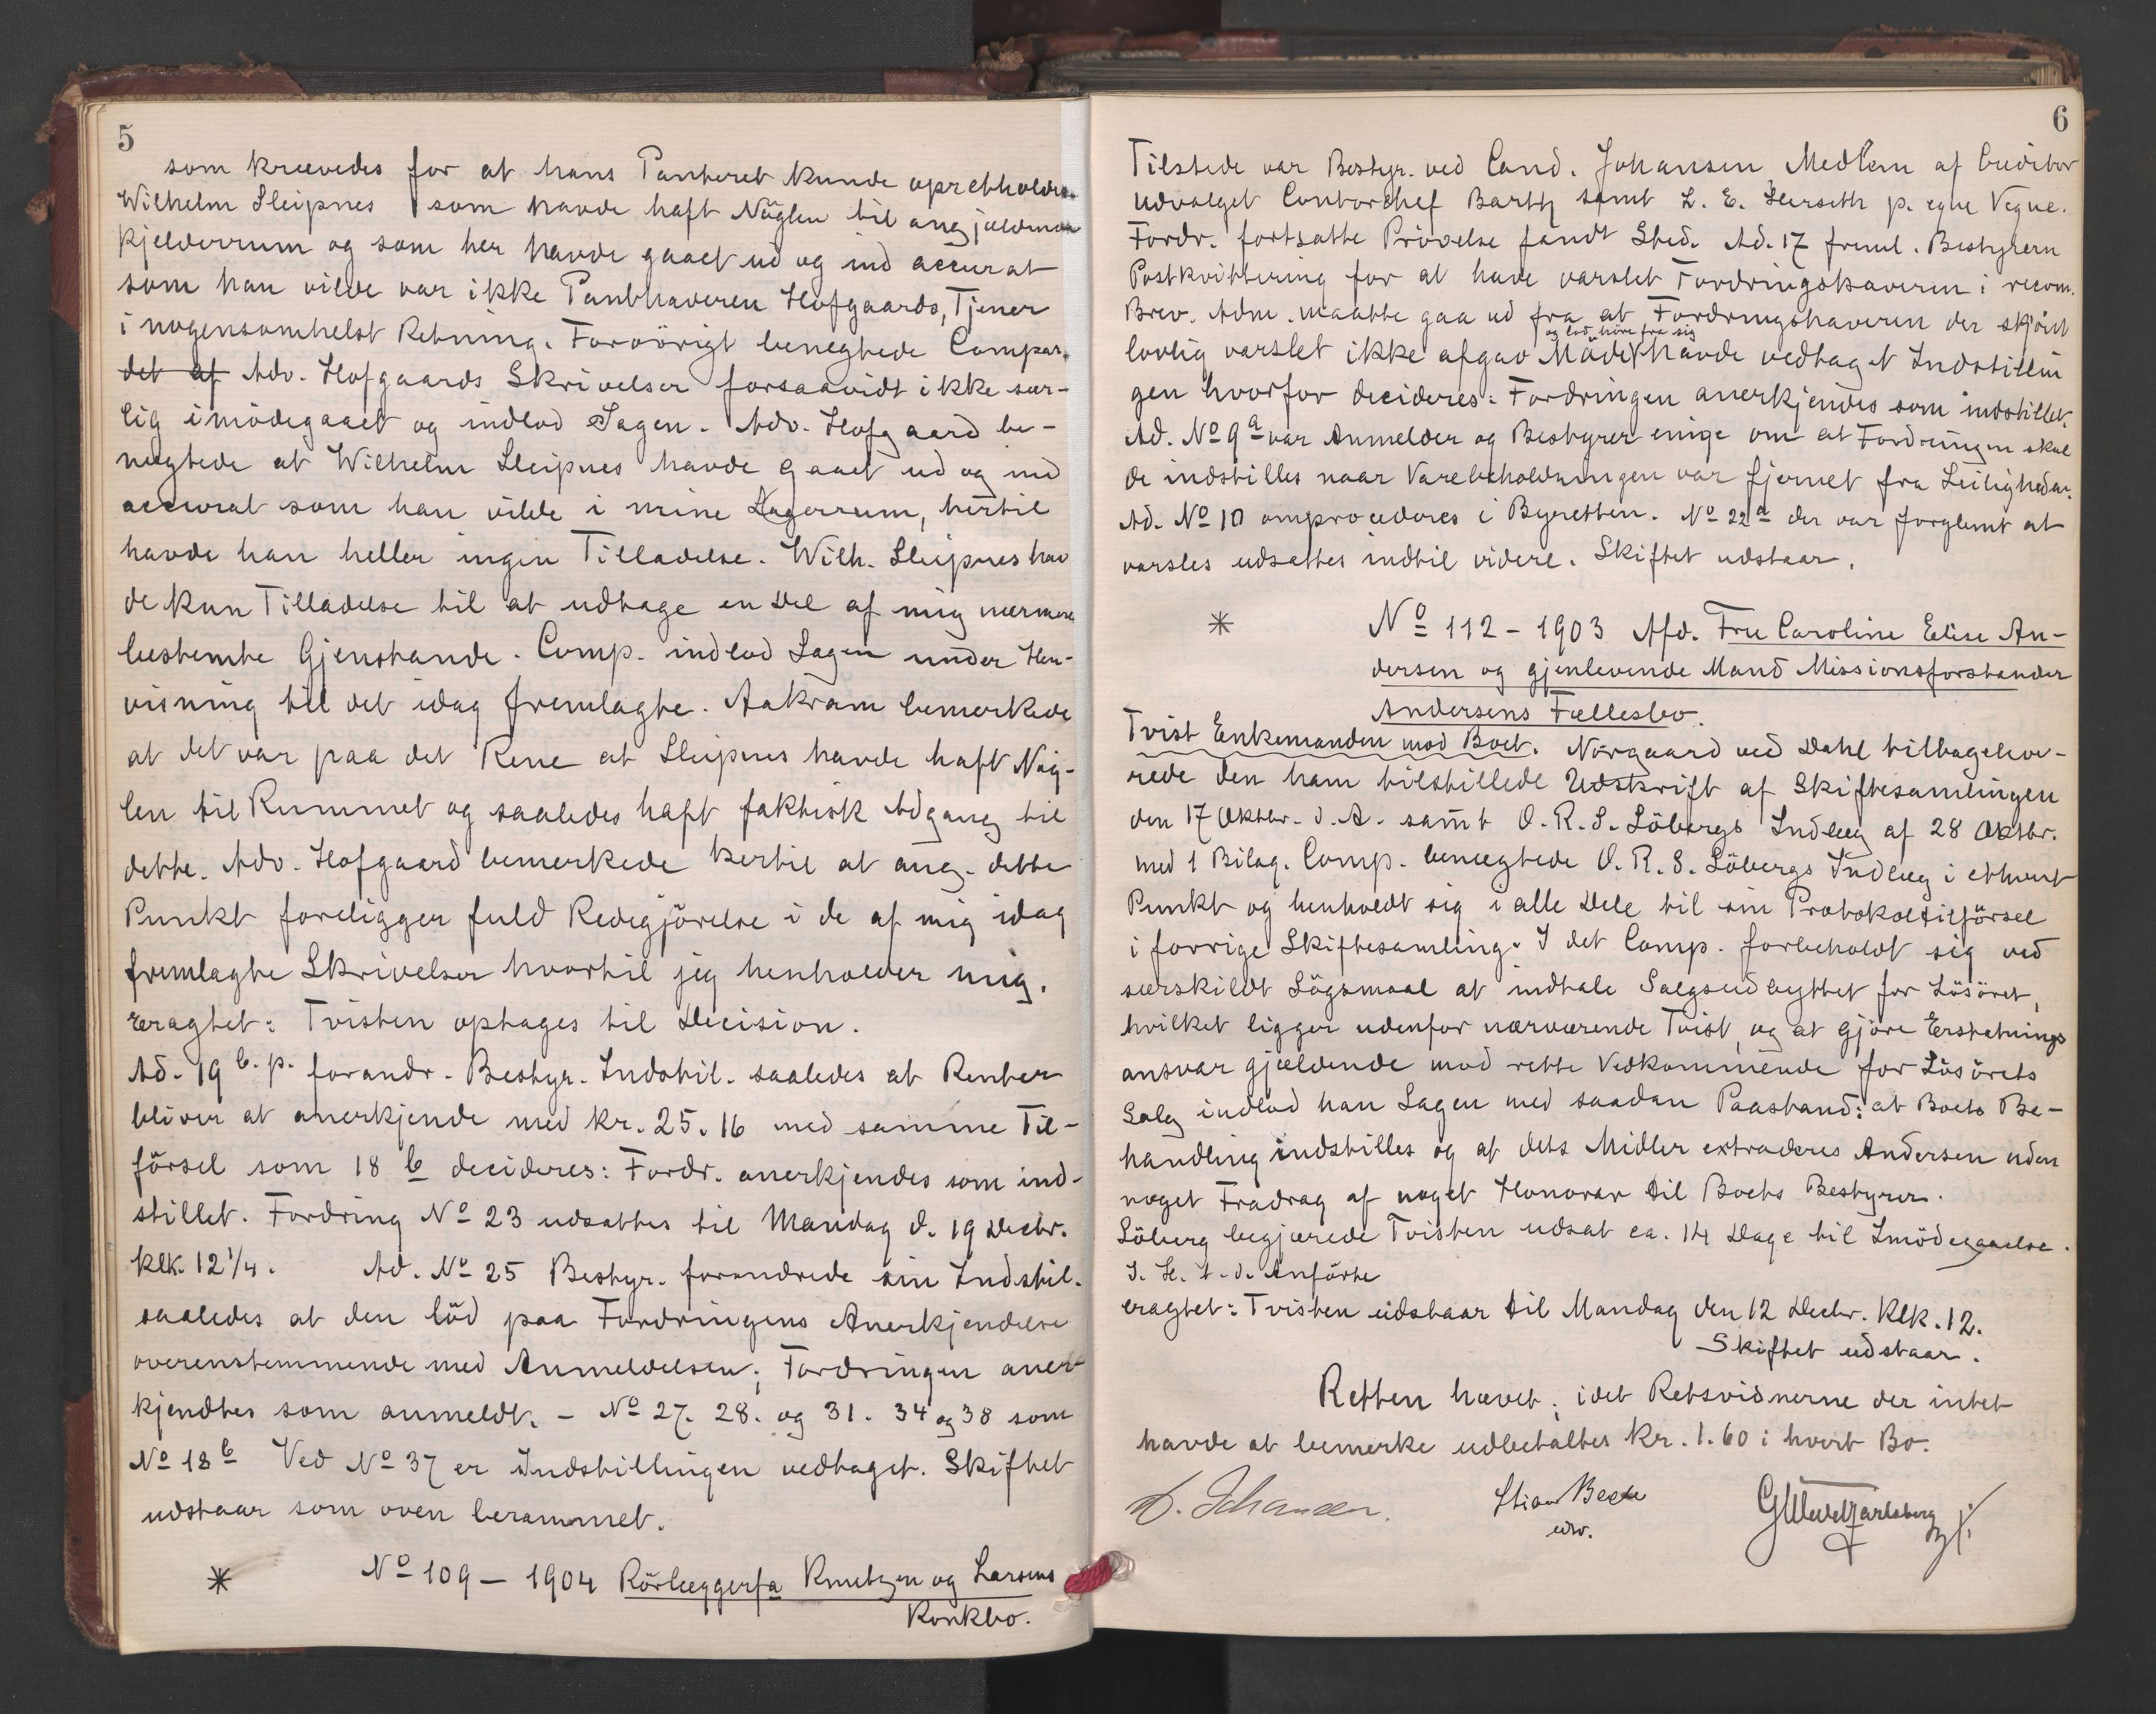 5
som krævedes for at hans Panteret kunde opretholdes.
Wilhelm Sleipnes som havde haft Nöglen til angjældende
Kjelderrum og som her havde gaaet ud og ind accurat
som han vilde var ikke Panthaveren Hofgaards, Tjener
i nogensomhelst Retning. Forövrigt benegtede Compar.
det af Adv. Hofgaards Skrivelser forsaavidt ikke sær-
lig imödegaaet og indlod Sagen. Adv. Hofgaard be-
negtede at Wilhelm Sleipnes havde gaaet ud og ind
accurat som han vilde i mine Lagerrum, hertil
havde han heller ingen Tilladelse. Wilh. Sleipnes hav
de kun Tilladelse til at udtage en Del af mig nærmere
bestemte Gjenstande. Comp. indlod Sagen under Hen-
visning til det idag fremlagte. Aakram bemerkede
at det var paa det Rene at Sleipnes havde haft Nög-
len til Rummet og saaledes haft faktisk Adgang til
dette. Adv. Hofgaard bemerkede hertil at ang. dette
Punkt foreligger fuld Redegjörelse i de af mig idag
fremlagte Skrivelser hvortil jeg henholder mig.
eragtet: Tvisten optages til Decision.
Ad. 19 b. p. forandr. Bestyr. Indstil. saaledes at Renter
bliver at anerkjende med kr. 25.16 med samme Til-
försel som 18 b decideres: Fordr. anerkjendes som ind-
stillet. Fordring No 23 udsattes til Mandag d. 19 Decbr.
Klk. 12 1/4. Ad. No 25 Bestyr. forandrede sin Indstil.
saaledes at den löd paa Fordringens Anerkjendelse
overenstemmende med Anmeldelsen; Fordringen aner
kjendtes som anmeldt. - No 27. 28. og 31. 34 og 38 som
No 18 b Ved No 37 er Indstillingen vedtaget. Skiftet
udstaar som oven berammet.
* No 109 - 1904 Rörlæggerfa Knutzen og Larsens
Konkbo.
6
Tilstede var Bestyr. ved Cand. Johansen Medlem af Creditor
udvalget Contorchef Bartz samt L. E. Seirseth p. egne Vegne.
Fordr. fortsatte Prövelse fandt Sted. Ad. 17 freml. Bestyrern
Postkvittering for at have varslet Fordringshaveren i recom.
Brev. Adm. maatte gaa ud fra at Fordringshaveren der skjönt
og lod höre fra sig
lovlig varslet ikke afgav Möde havde vedtaget Indstillin
gen hvorfor decideres: Fordringen anerkjendes som indstillet.
Ad. No 9 a var Anmelder og Bestyrer enige om at Fordringen skul
de indstilles naar Varebeholdningen var fjernet fra Leiligheden.
Ad. No 10 omprocederes i Byretten. No 22 a der var forglemt at
varsles udsattes indtil videre. Skiftet udstaar.
* No 112 - 1903 Afd. Fru Caroline Elise An-
dersen og gjenlevende Mand Missionsforstander
Andersens Fællesbo.
Tvist Enkemanden mod Boet. Nörgaard ved Dahl tilbageleve-
rede den ham tilstillede Udskrift af Skiftesamlingen
den 17 Oktbr. d. A. samt O. R. S. Löbergs Indlæg af 28 Oktbr.
med 1 Bilag. Comp. benegtede O. R. S. Löbergs Indlæg i ethvert
Punkt og henholdt sig i alle Dele til sin Protokoltilförsel
i forrige Skiftesamling. I det Comp. forbeholdt sig ved
særskildt Sögsmaal at indtale Salgsudbyttet for Lösöret,
hvilket ligger udenfor nærværende Tvist, og at gjöre Erstatnings
ansvar gjældende mod rette Vedkommende for Lösörets
Salg indlod han Sagen med saadan Paastand: at Boets Be-
handling indstilles og at dets Midler extraderes Andersen uden
noget Fradrag af noget Honorar til Boets Bestyrer.
Löberg begjærede Tvisten udsat ca. 14 Dage til Imödegaaelse.
I. H. t. d. Anförte
eragtet: Tvisten udstaar til Mandag den 12 Decbr. Klk. 12.
Skiftet udstaar.
Retten hævet, idet Retsvidnerne der intet
havde at bemerke udbetaltes Kr. 1.60 i hvert Bo.
Johansen.